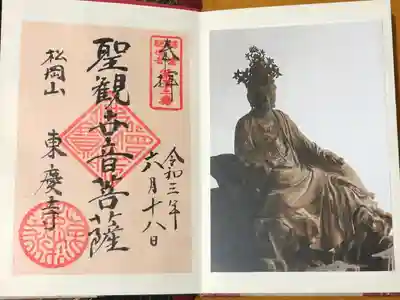 奉拝
令和三年
六月十八日
聖観世音菩薩
松岡山
東慶寺